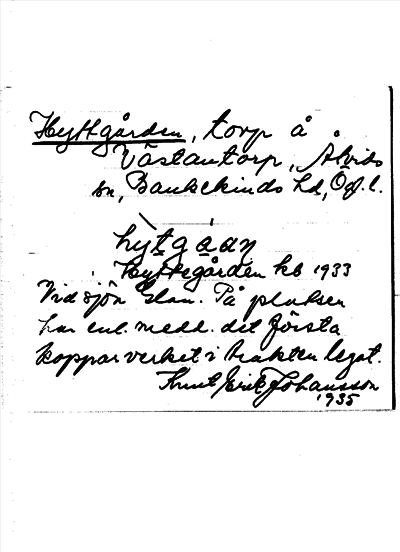 Hyttgården, torp å
Västantorp, Åtvids
sn, Bankekinds hd, Ög. l.
hy̱tga̱an
Hyttegården kb 1933
Vid sjön Glan. På platsen
har enl. medd. det första
kopparverket i trakten legat.
Knut Erik Johansson
1935